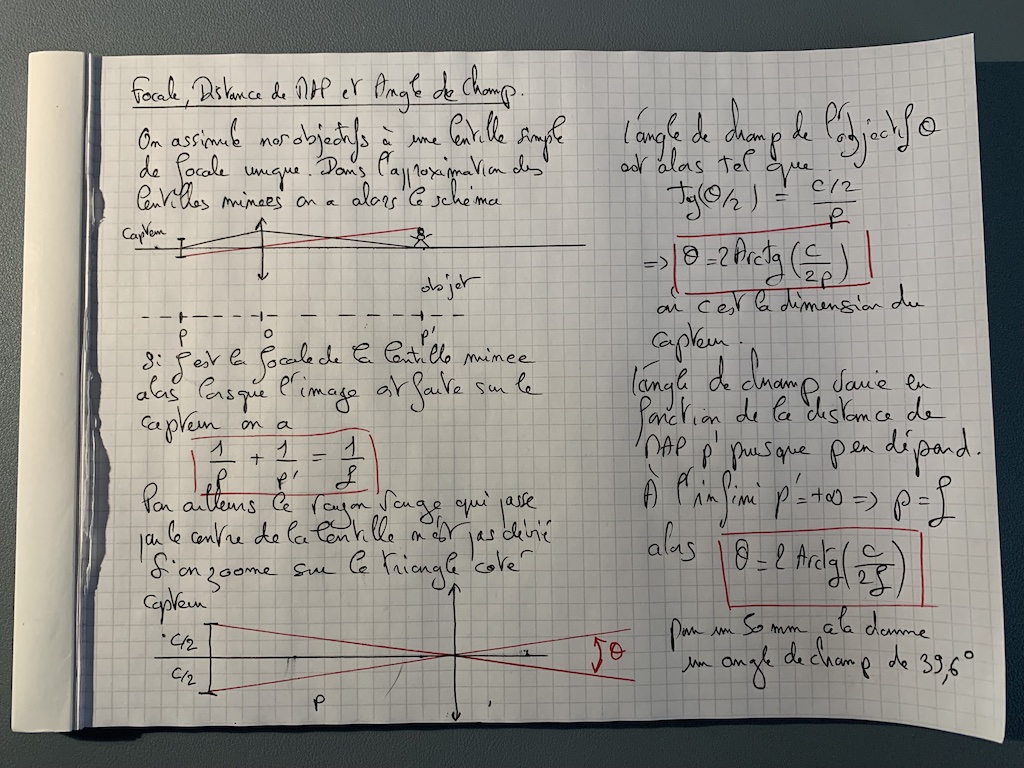 Focale, Distance de MAP et Angle de Champ.
On assimile nos objectifs à une lentille simple
de focale unique. Dans l'approximation des
lentilles minces on a alors le schéma
Capteur
objet
P O P'
Si f est la focale de la lentille mince
alors lorsque l'image est faite sur le
capteur on a
1/p + 1/p' = 1/f
Par ailleurs le rayon rouge qui passe
par le centre de la lentille n'est pas dévié
Si on zoome sur le triangle coté
Capteur
C/2
C/2
θ
P
l'angle de champ de l'objectif θ
est alors tel que
Tg(θ/2) = (c/2)/p
=> θ = 2 Arctg(c/2p)
où c est la dimension du
capteur.
l'angle de champ varie en
fonction de la distance de
MAP p' puisque p en dépend.
À l'infini p' = +∞ => p = f
alors θ = 2 Arctg(c/2f)
pour un 50 mm a la donne
un angle de champ de 39,6°